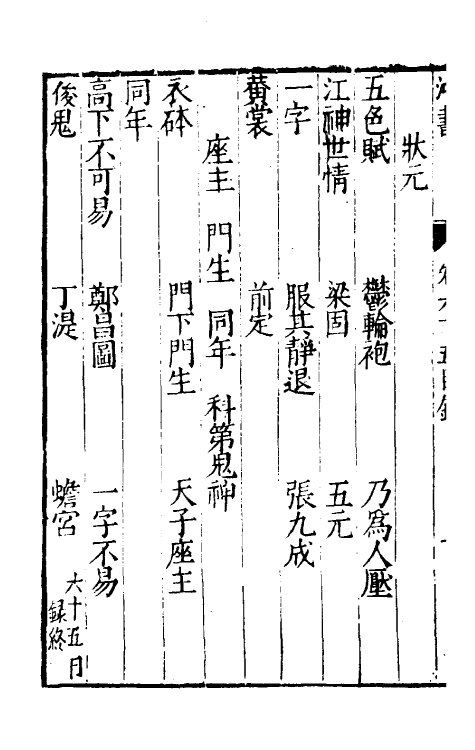 狀元
五色賦 鬱輪袍 乃爲人壓
江神世情 梁固 五元
一字 服其靜退 張九成
黄裳 前定
座主 門生 同年 科第鬼神
衣砵 門下門生 天子座主
同年
高下不可易 鄭昌圖 一字不易
俊鬼 丁湜 蟾宮 六十五目
録終